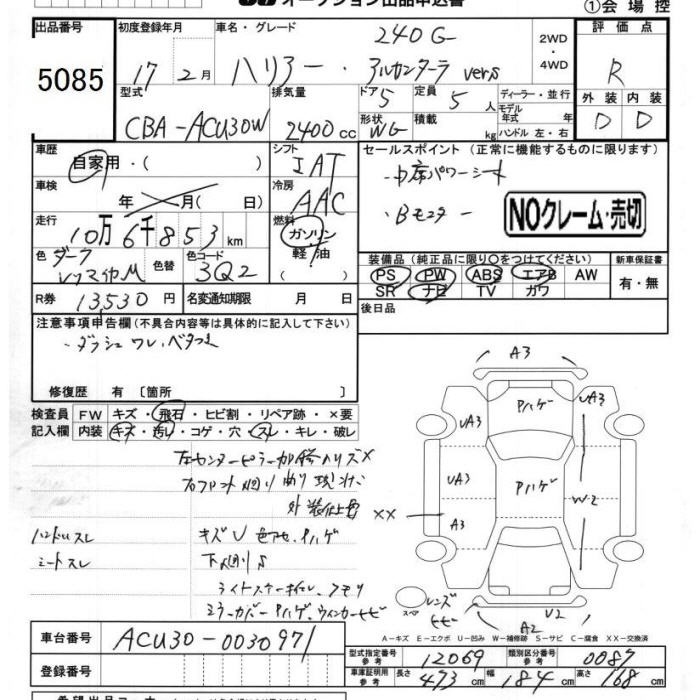 オークション出品申込書
①会場控
出品番号 初度登録年月 車名・グレード 240G 2WD・4WD 評価点
5085 17年2月 ハリアー・アルカンターラ vers R
型式 排気量 ドア 5 定員 5人 ディーラー・並行 外装 内装
CBA-ACU30W 2400cc 形状 WG 積載 kg モデル年式 年式 ハンドル 左・右 D D
車歴 自家用・( ) シフト IAT セールスポイント(正常に機能するものに限ります)
車検 年 月(日) 冷房 AAC ・中席パワーシート
走行 10万6千853km 燃料 ガソリン・軽油 ( ) ・Bモニター NOクレーム・売切
色 ダーク M 色替 色コード 3Q2 装備品(純正品に限り○をつけてください) 新車保証書
PS PW ABS エアB AW 有・無
R券 13530円 名変通知期限 月 日 SR ナビ TV カワ
後日品
注意事項申告欄(不具合内容等は具体的に記入して下さい)
・ダッシュ ワレ、ベタつき
修復歴 有〔箇所 〕
検査員記入欄 FW キズ・飛石・ヒビ割・リペア跡・×要
内装 キズ・汚れ・コゲ・穴・スレ・キレ・破レ
左センターピラー
ハンドルスレ キズU 色アセ、Pハゲ
シートスレ 下回りS
ミラーカバーPハゲ、ウィンカーヒビ
A3
Pハゲ
UA3 UA3
UA3 Pハゲ W2
XX A3
スペア レンズヒビ
U2
A2
A-キズ E-エクボ U-凹み W-補修跡 S-サビ C-腐食 XX-交換済
車台番号 ACU30-0030971
型式指定番号 参考 12069 類別区分番号 参考 0087
登録番号 車庫証明用 参考 長さ 473cm 幅 184cm 高さ 168cm